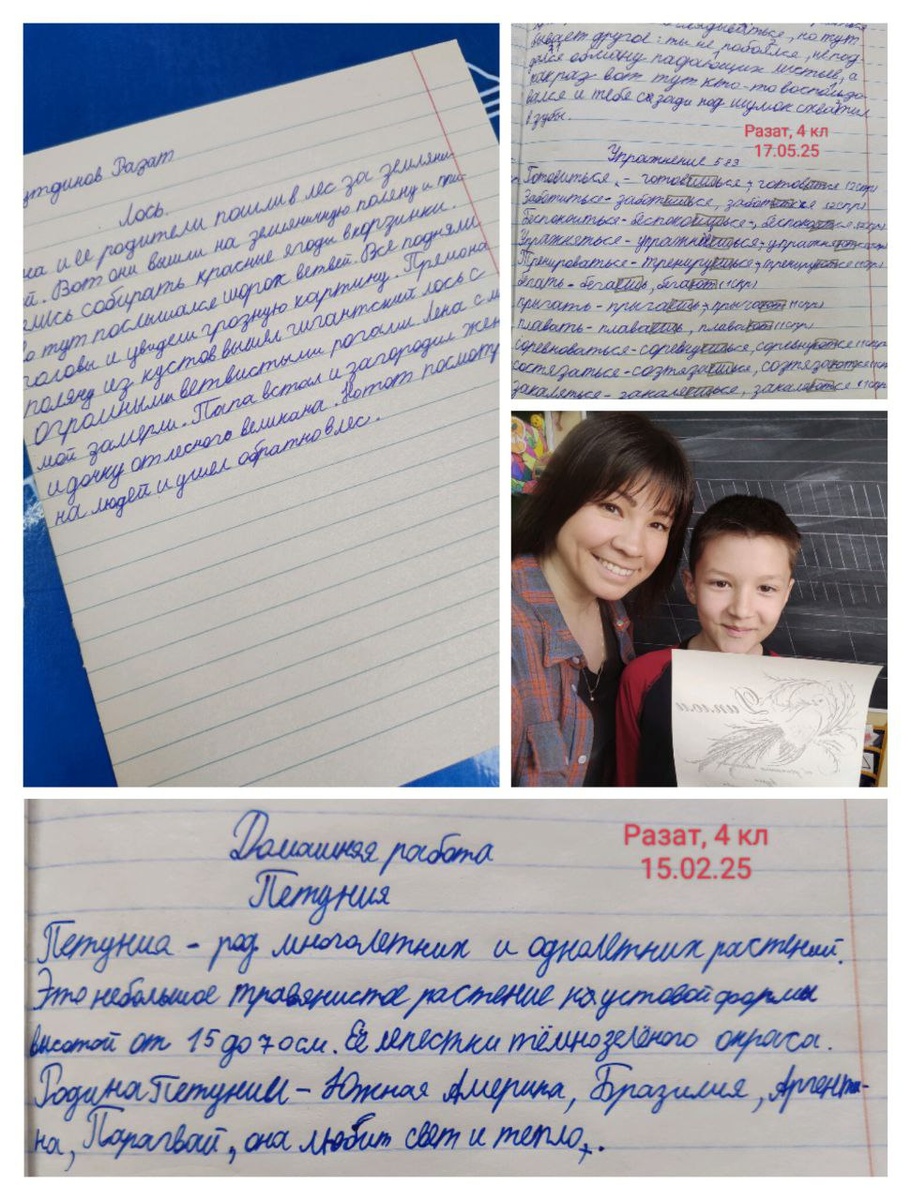 Разат
Лось.
и ее родители пошли в лес за земляни-
й. Вот они вышли на земляничную поляну и при-
лись собирать красные ягоды в корзинки.
тут послышался шорох ветвей. Все подняли
головы и увидели грозную картину. Прямо на
поляну из кустов вышел гигантский лось с
огромными ветвистыми рогами. Лена с ма
мой замерли. Папа встал и загородил жен
и дочку от лесного великана. Но тот посмотр
на людей и ушел обратно в лес.
бывает другое: ты не побоялся, не под-
дался обману падающих листьев, а
как раз вот тут кто-то воспользо-
вался и тебе сзади под шумок схватил
в зубы.
Разат, 4 кл
17.05.25
Упражнение 583
Готовиться, - готовишься, готовятся
Заботиться - заботишься, заботятся
Беспокоиться - беспокоишься, беспокоятся
Упражняться - упражняешься, упражняются
Тренироваться - тренируешься, тренируются
бегать - бегаешь, бегают
прыгать - прыгаешь, прыгают
плавать - плаваешь, плавают
соревноваться - соревнуешься, соревнуются
состязаться - созтязаешься, созтязаются
закаляться - закаляешься, закаляются
Диплом
Домашняя работа
Разат, 4 кл
15.02.25
Петуния
Петуниа - род многолетних и однолетних растений.
Это небольшое травянистое растение кустовой формы
высотой от 15 до 70 см. Её лепестки тёмнозелёного окраса.
Родина Петунии - Южная Америка, Бразилия, Аргенти-
на, Парагвай, она любит свет и тепло.